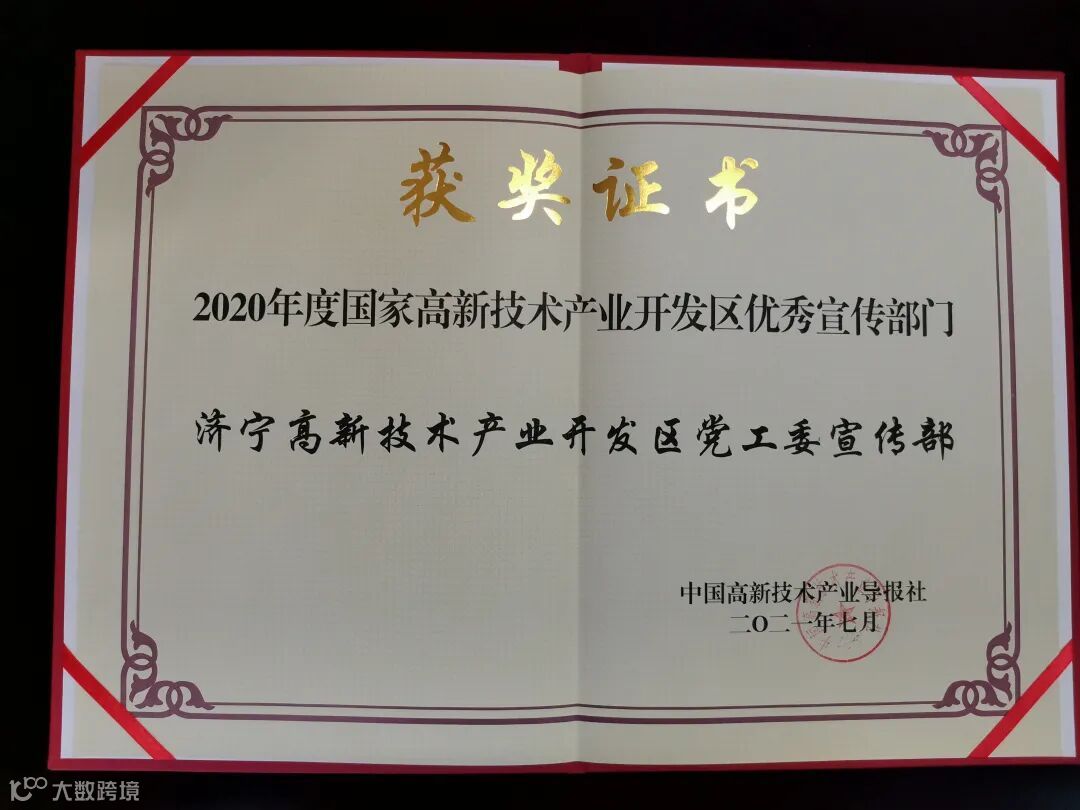 获奖证书
2020年度国家高新技术产业开发区优秀宣传部门
济宁高新技术产业开发区党工委宣传部
中国高新技术产业导报社
二〇二一年七月
大数跨境